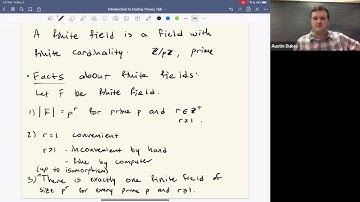 Introduction to Coding Theory Talk
A finite field is a field with
finite cardinality. Z/pZ, prime
• Facts about finite fields.
Let F be finite field.
1) |F| = p^r for prime p and r ∈ Z^+
r ≥ 1.
2) r=1 convenient
r>1 - inconvenient by hand
- fine by computer
(up to isomorphism)
3) There is exactly one finite field of
size p^r for every prime p and r≥1.
Austin Dukes